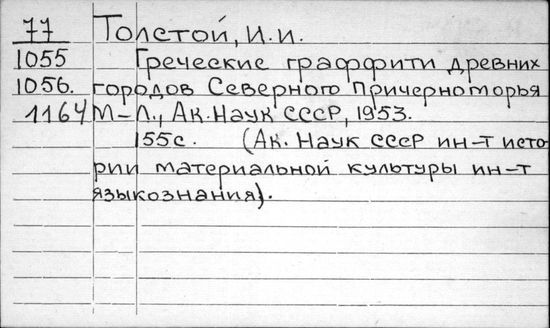 77 Толстой, И.И.
1055 Греческие граффити древних
1056. городов Северного Причерноморья
1164 М-Л., Ак.Наук СССР, 1953.
155с. (Ак. Наук СССР ин-т исто
рии материальной культуры ин-т
языкознания).